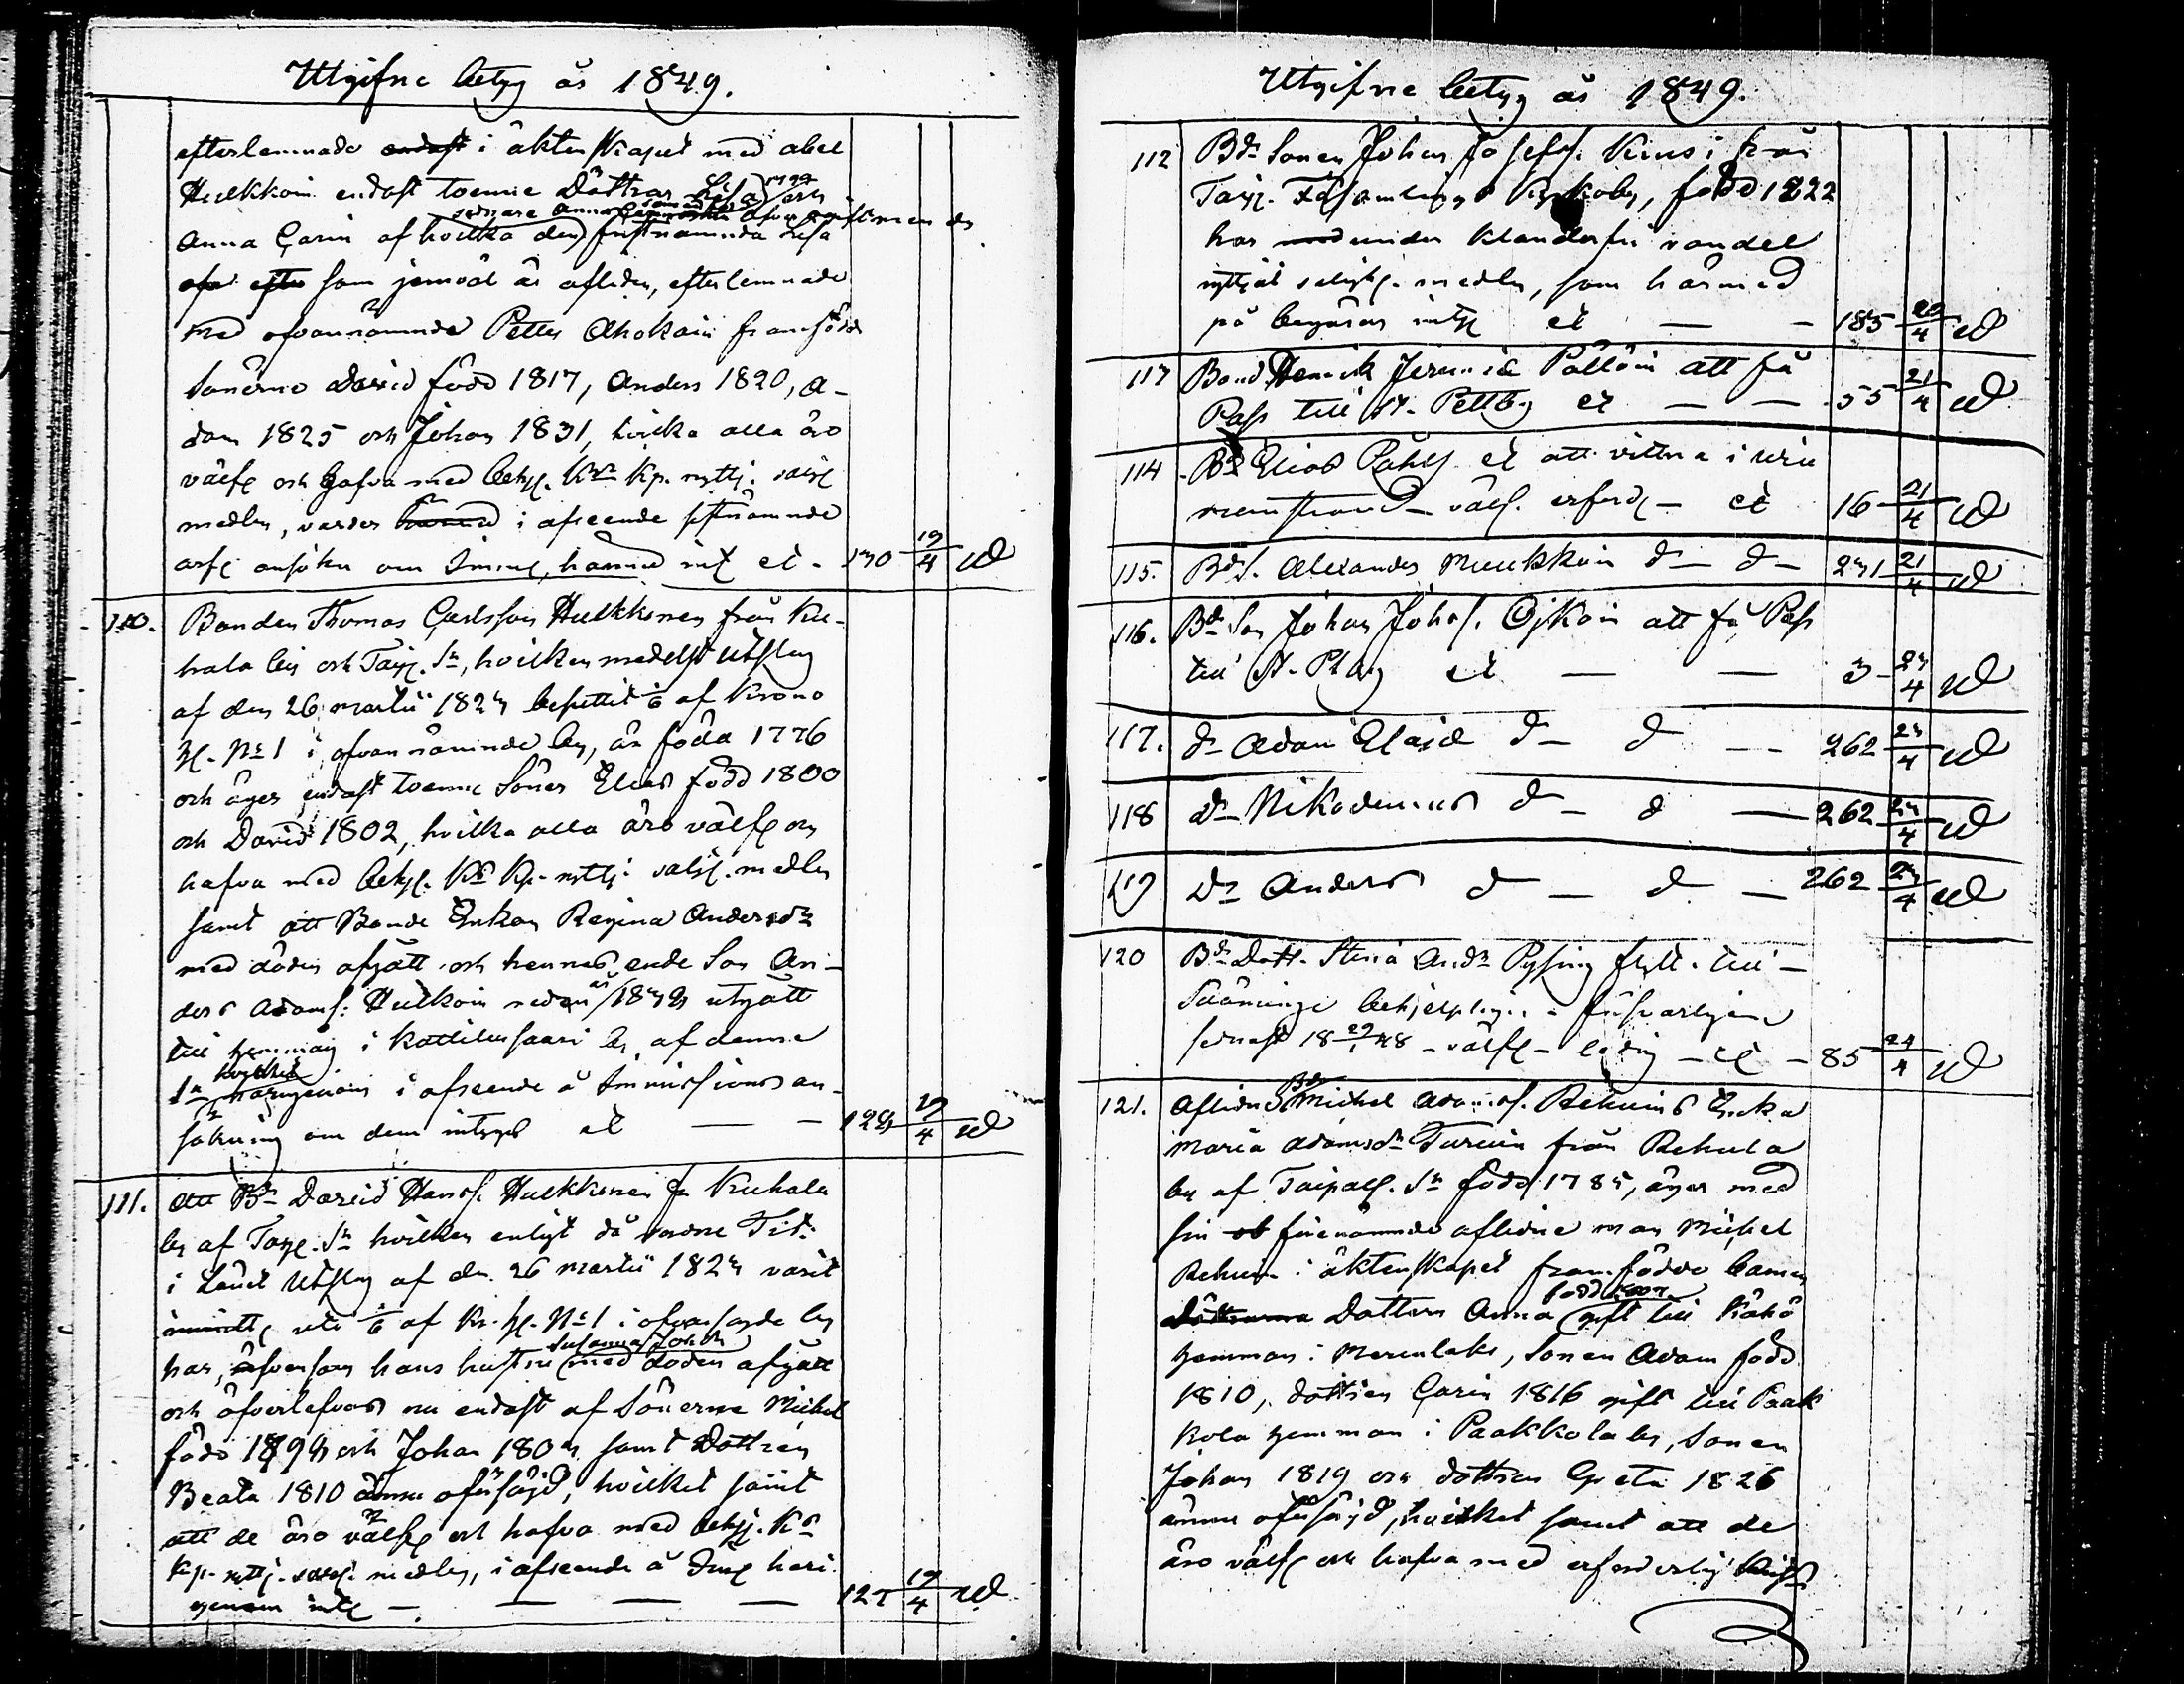 Utgifne betyg år 1849.
efterlemnade endast i äktenskapet med abel
Hulkkoin endast tvenne Döttrar Lisa och
Anna Carin af hvilka den förstnämnda Lisa
som jemväl är afliden, efterlemnade
med ofvannämnde Petter Ahokain framfödde
Sönerne David född 1817, Anders 1820, A-
dam 1825 och Johan 1831, hvilka alla äro
välfr och hafva med behjel. Kr Kp. nyttj. salig
medlen, varder i afseende
ansökn om Immis, härmed int et - 130 19/4 UD
110. Bonden Thomas Carlsson Hulkkonen från Ku-
hala by och Taip. Sn, hvilken medelst Utslag
af den 26 martii 1824 besuttit 1/6 af Krono
H. No 1 i ofvannämnde by, är född 1776
och äger endast tvenne Söner Elias född 1800
och David 1802, hvilka alla äro välfr och
hafva med behjel. Kr Kp. nyttj. salig. medlen
samt att Bonde Enkan Regina Andersdr
med döden afgått och hennes enda Son An-
ders Adams: Hulkoin redan utgått
till hemmäg i Kattilussaari by af denna
Sn hvilket härigenom i afseende å Immissions an-
sökning om dem intygas et — — 124 19/4 UD
111. Att Bdn David Hansf. Hulkkonen fr Kuhala
by af Taip. Sn hvilken enligt
i Länet Utslag af den 26 martii 1824 varit
uti 1/6 af Kr. H. No 1 i ofvansagde by
har, äfvensom hans hustru Susanna med döden afgått
och öfverlefvas nu endast af Sönerne Michel
född och Johan samt Dottren
Beata 1810 ännu oförsöjd, hvilket jämt
att de äro välfr och hafva med behj. Kr
Kp. nyttj. salig. medlen, i afseende å Imis häri
genom intg — — — — 127 19/4 UD
Utgifne betyg år 1849.
112 Bde Sonen Johan Josefs. Kinsi från
Taip. Församlings Kyrkoby, född 1822
har under klanderfri vandel
nyttjat saligh. medlen, som härmed
på begäran intg et — - 185 20/4 UD
113 Bond. Henrik Jeremiæ Pöllöin att få
Pass till St. Pettbg et — — 55 21/4 UD
114 Bd Elias Påhls. et att vittna i
välf. erford - et 16 21/4 UD
115. Bd S. Alexander Muukkoin d— d— 231 21/4 UD
116. Bde Son Johan Johs. Ojkoin att få Pass
till St. Ptbg et — — 3 23/4 UD
117. dn Adam Elajæ d— d — 262 23/4 UD
118 dn Nikodemus d— d — 262 23/4 UD
119 dn Anders d — d — 262 23/4 UD
120 Bde Dott. Stina Andr Pyssing flytt. till —
Sääminge behjelplig i försvarligen
sednast 18 29/1 48 - välfr - ledig - et - 85 24/4 UD
121. Aflidne Bdn Michel Adams. Rekuins Enka
Maria Adamsdr Turuin från Rekula
by af Taipals. Sn född 1785, äger med
sin förenämnde aflidne man Michel
Rekuin i äktenskapet framfödde barnen
Dottern Anna född gift till Kähö
hemman i Merenlaks, Sonen Adam född
1810, dottren Carin 1816 gift till Paak
kola hemman i Paakkola by, Sonen
Johan 1819 och dottren Greta 1826
ännu oförsöjd, hvilket samt att de
äro välfr och hafva med erforderlig